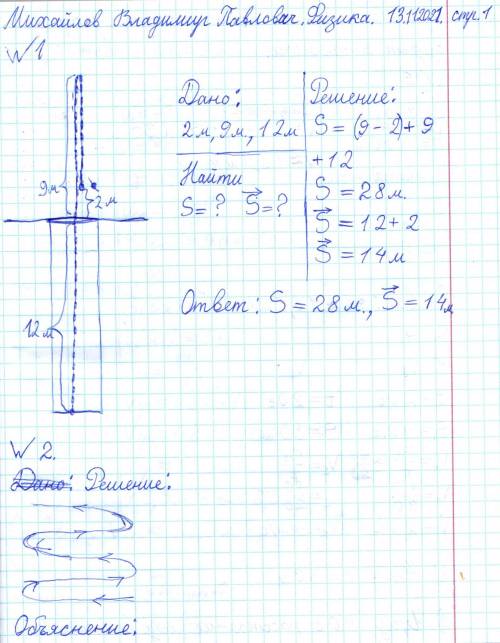 Михайлов Владимир Павлович. Физика. 13.11.2021. стр. 1
№ 1
Дано:
2 м, 9 м, 12 м
Найти
S = ? S⃗ = ?
Решение:
S = (9 - 2) + 9
+ 12
S = 28 м.
S⃗ = 12 + 2
S⃗ = 14 м
9 м
2 м
12 м
Ответ: S = 28 м., S⃗ = 14 м
№ 2.
Дано: Решение:
Объяснение: